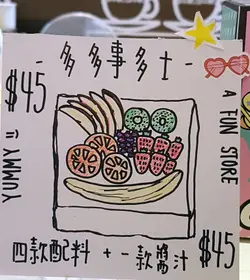 - 多多事多士 -
$45
YUMMY =)
A TUN STORE
四款配料 + 一款醬汁
$45